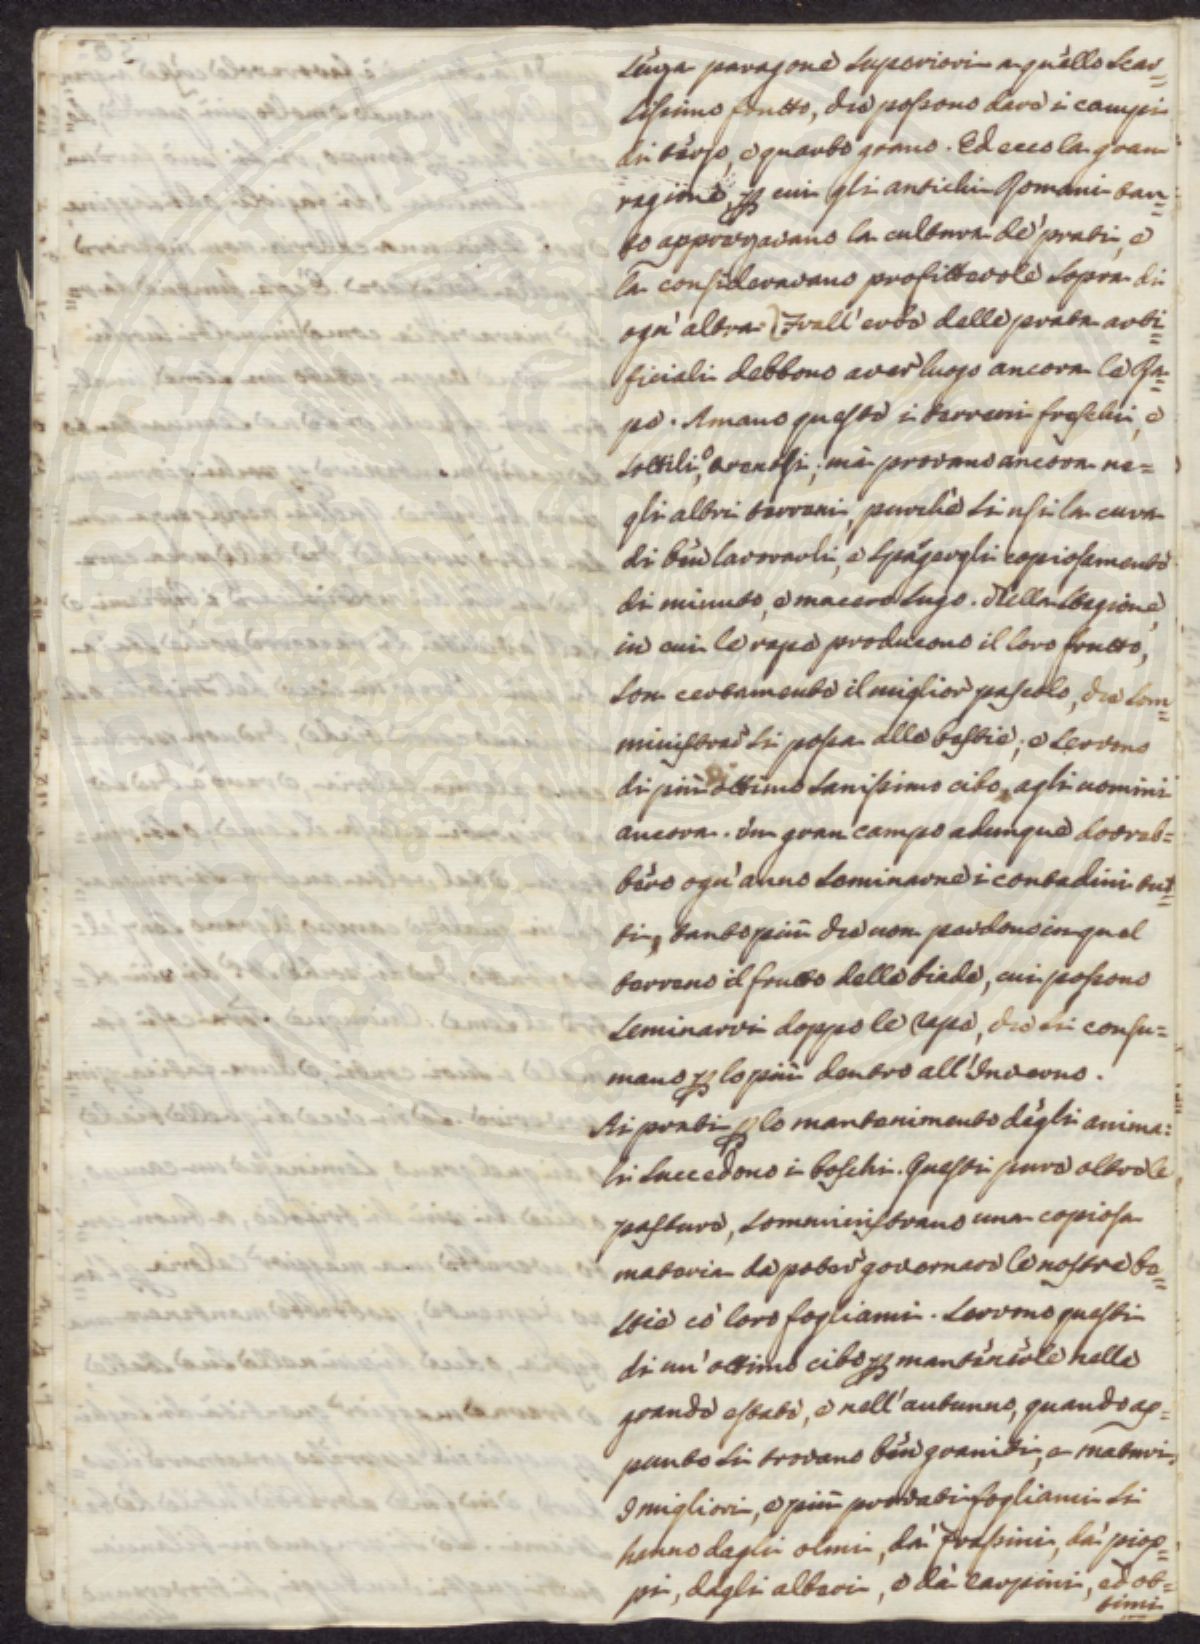 senza paragone superiori a quello scar=
sissimo frutto, che possono dare i campi
di terzo, e quarto grano. Ed ecco la gran
ragione, per cui gli antichi Romani tan=
to apprezzavano la cultura de' prati, e
la consideravano profittevole sopra di
ogn' altra. Frall' erbe delle prata arti=
ficiali debbono aver luogo ancora le Ra=
pe. Amano queste i terreni freschi, e
sottili, o arenosi; mà provano ancora ne=
gli altri terreni, purchè si usi la cura
di bèn lavorarli, e spàgergli copiosamente
di minuto, e macero sugo. Nella stagione,
in cui le rape producono il loro frutto,
son certamente il miglior pascolo, che som=
ministrar si possa alle bestie; e servono
di più ottimo sanissimo cibo, agli uomini
ancora. Un gran campo adunque dovreb=
bero ogn' anno seminarne i contadini tut=
ti, tanto più che non perdono in quel
terreno il frutto delle biade, cui possono
seminarvi doppo le rape, che si consu=
mano per lo più dentro all' Inverno.
Ai prati per lo mantenimento dègli anima=
li succedono i boschi. Questi pure oltre le
pasture, somministrano una copiosa
materia da poter governare le nostre be=
stie co' loro fogliami. Servono questi
di un' ottimo cibo per mantenerle nelle
grande estate, e nell' autunno, quando ap=
punto si trovano bèn graniti, e maturi.
I migliori, e più provati fogliami si
hanno dagli olmi, da' Frassini, da' piop=
pi, dagli alberi, e da' carpini, ed ot=
timi